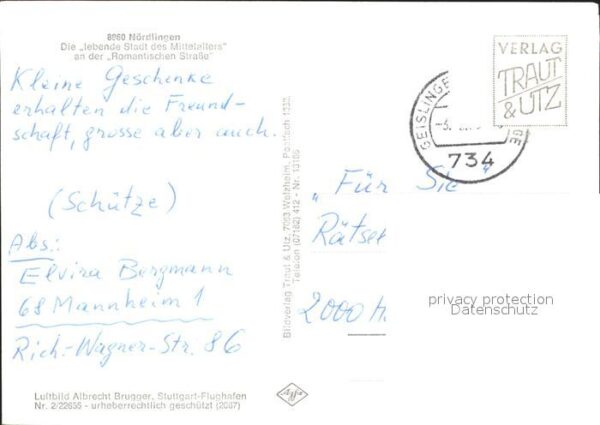 8860 Nördlingen
Die „lebende Stadt des Mittelalters"
an der „Romantischen Straße"
Kleine Geschenke
erhalten die Freund-
schaft, grosse aber auch.
(Schütze)
Abs.:
Elvira Bergmann
68 Mannheim 1
Rich.-Wagner-Str. 86
Luftbild Albrecht Brugger, Stuttgart-Flughafen
Nr. 2/22635 - urheberrechtlich geschützt (2087)
Bildverlag Traut & Utz, 7063 Welzheim, Postfach 1533
Telefon (07182) 412 - Nr. 13106
Agfa
GEISLINGE
734
VERLAG
TRAUT
& UTZ
„Für Sie"
Rätsel
2000 H
privacy protection
Datenschutz